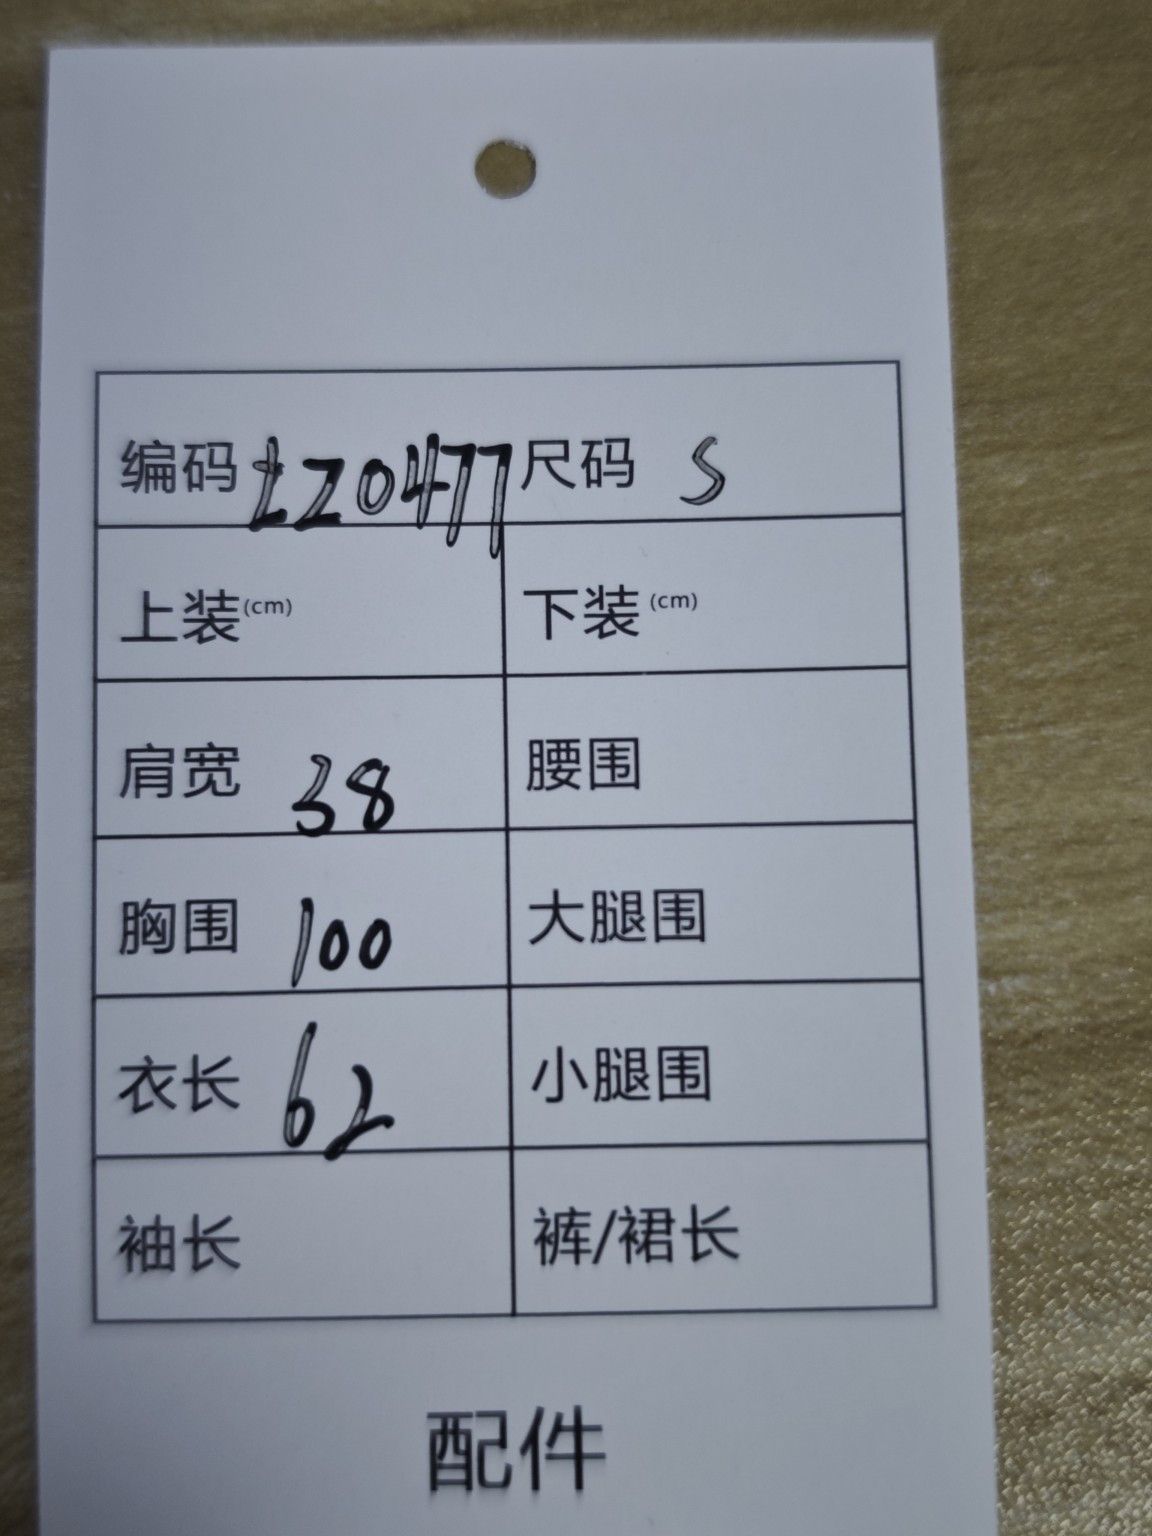 编码 LZ0477 尺码 S
上装(cm) 下装(cm)
肩宽 38 腰围
胸围 100 大腿围
衣长 62 小腿围
袖长 裤/裙长
配件